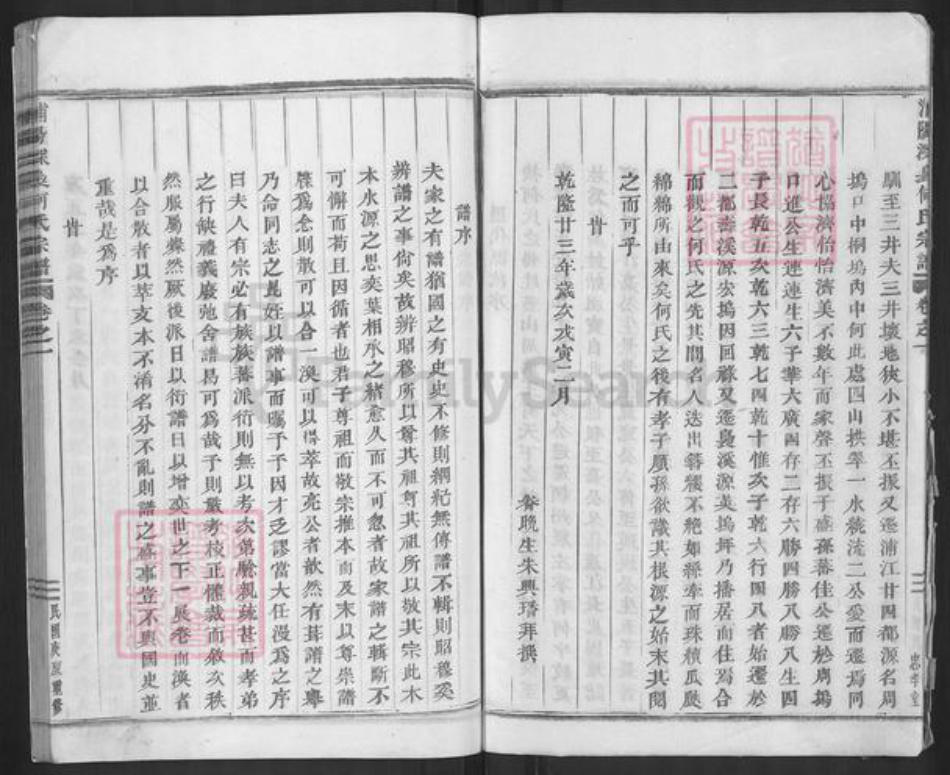 馴至三井夫三井壤地狹小不堪丕振又遷浦江廿四都源名周
塢口中桐塢內中何此處四山拱翠一水縈流二公愛而遷焉同
心協濟怡怡濟美不數年而家聲丕振于盛孫蕃佳公遷於周塢
口進公生連連生六子華六廣四存二存六勝四勝八勝八生四
子長乾五次乾六三乾七四乾十惟次子乾六行四八者始遷於
二都壽溪源宏塢因回祿又遷裊溪源英塢坪乃播居而住焉合
而觀之何氏之先其間名人迭出簪纓不絕如絲牽而珠積瓜瓞
綿綿所由來矣何氏之後有孝子順孫欲識其根源之始末其閱
之而可乎
旹
乾隆廿三年歲次戊寅二月
眷晚生朱興瑨拜撰
浦陽深裊何氏宗譜
卷之一
忠孝堂
譜序
夫家之有譜猶國之有史史不修則綱紀無傳譜不輯則昭穆奚
辨譜之事尚矣故辨昭穆所以尊其祖尊其祖所以敬其宗此木
本水源之思奕葉相承之緒愈久而不可忽者故家譜之輯斷不
可懈而苟且因循者也君子尊祖而敬宗推本而及末以尊崇譜
牒為念則散可以合渙可以萃故亮公者歆然有葺譜之舉
乃命同志之昆姪以譜事而囑于予予因才乏謬當大任漫為之序
曰夫人有宗必有族族蕃派衍則無以考次第驗親疏甚而孝弟
之行缺禮義廢弛舍譜曷可為哉于則嚴考校正僅裁而敘次秩
然服屬燦然厥後派日以衍譜日以增奕世之下一展卷而渙者
以合散者以萃支本不淆名分不亂則譜之盛事豈不與國史並
重哉是為序
旹
浦陽深裊何氏宗譜
卷之一
民國庚辰重修
FamilySearch